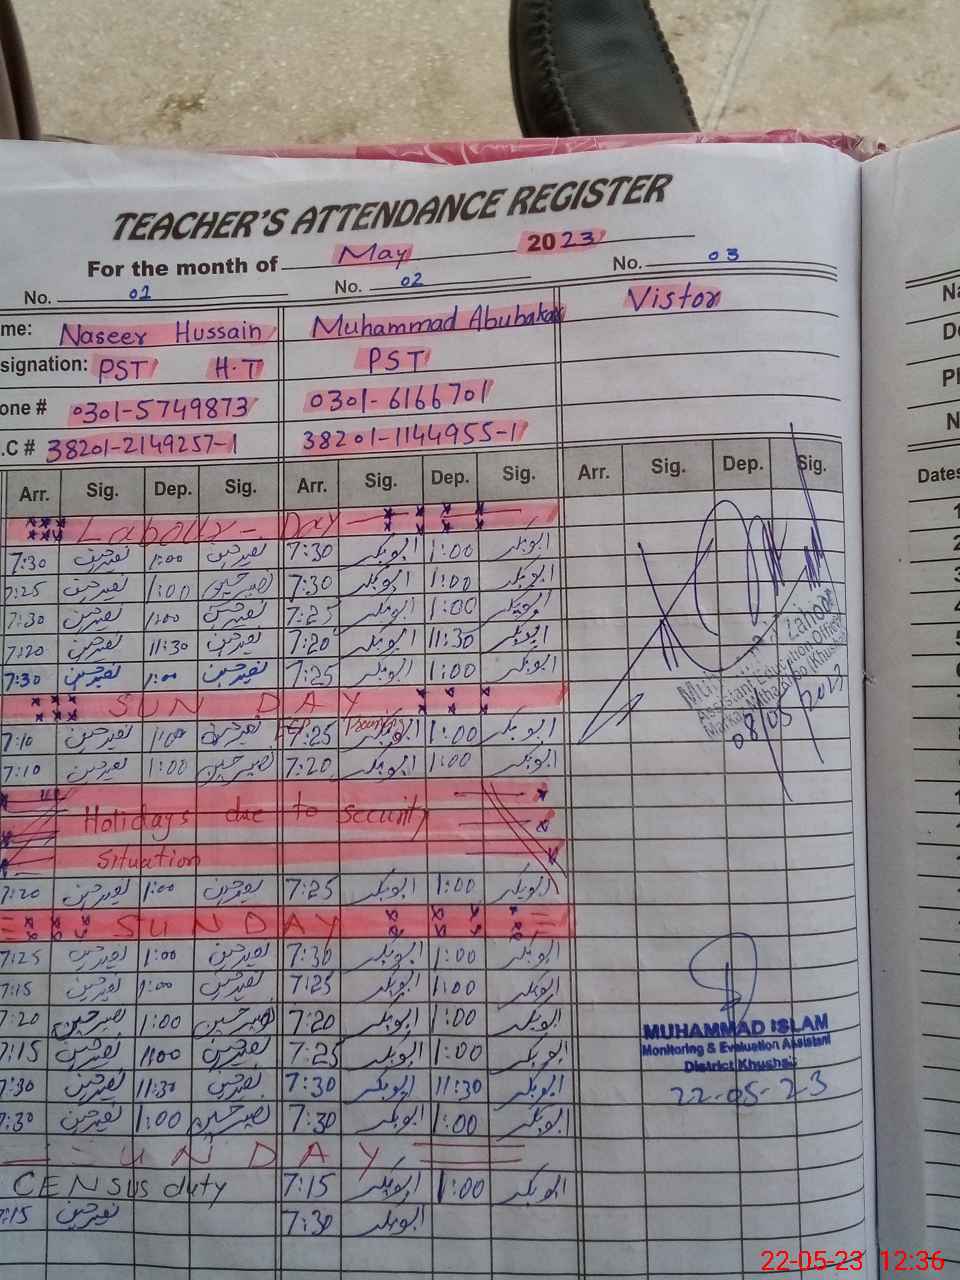 TEACHER'S ATTENDANCE REGISTER
For the month of May 2023
No. 01 No. 02 No. 03
me: Naseer Hussain Muhammad Abubakar Vistor Na
signation: PST H.T PST De
one # 0301-5749873 0301-6166701 Ph
.C # 38201-2149257-1 38201-1144955-1 N
Arr. Sig. Dep. Sig. Arr. Sig. Dep. Sig. Arr. Sig. Dep. Sig. Dates
DAY
7:30 نصیرحسین 1:00 نصیرحسین 7:30 ابوبکر 1:00 ابوبکر
7:25 نصیرحسین 1:00 نصیرحسین 7:30 ابوبکر 1:00 ابوبکر
7:30 نصیرحسین 1:00 نصیرحسین 7:25 ابوبکر 1:00 ابوبکر
7:20 نصیرحسین 11:30 نصیرحسین 7:20 ابوبکر 11:30 ابوبکر
7:30 نصیرحسین 1:00 نصیرحسین 7:25 ابوبکر 1:00 ابوبکر
SUN DAY
7:10 نصیرحسین 1:00 نصیرحسین 7:25 ابوبکر 1:00 ابوبکر
7:10 نصیرحسین 1:00 نصیرحسین 7:20 ابوبکر 1:00 ابوبکر
Holidays due to security
situation
7:20 نصیرحسین 1:00 نصیرحسین 7:25 ابوبکر 1:00 ابوبکر
SUNDAY
7:25 نصیرحسین 1:00 نصیرحسین 7:30 ابوبکر 1:00 ابوبکر
7:15 نصیرحسین 1:00 نصیرحسین 7:25 ابوبکر 1:00 ابوبکر
7:20 نصیرحسین 1:00 نصیرحسین 7:20 ابوبکر 1:00 ابوبکر
7:15 نصیرحسین 1:00 نصیرحسین 7:25 ابوبکر 1:00 ابوبکر
7:30 نصیرحسین 11:30 نصیرحسین 7:30 ابوبکر 11:30 ابوبکر
7:30 نصیرحسین 1:00 نصیرحسین 7:30 ابوبکر 1:00 ابوبکر
UN DAY
CENSUS duty 7:15 ابوبکر 1:00 ابوبکر
7:15 نصیرحسین 7:30 ابوبکر
Assistant Education Officer
08/05/2023
MUHAMMAD ISLAM
Monitoring & Evaluation Assistant
District Khushab
22-05-23
22-05-23 12:36